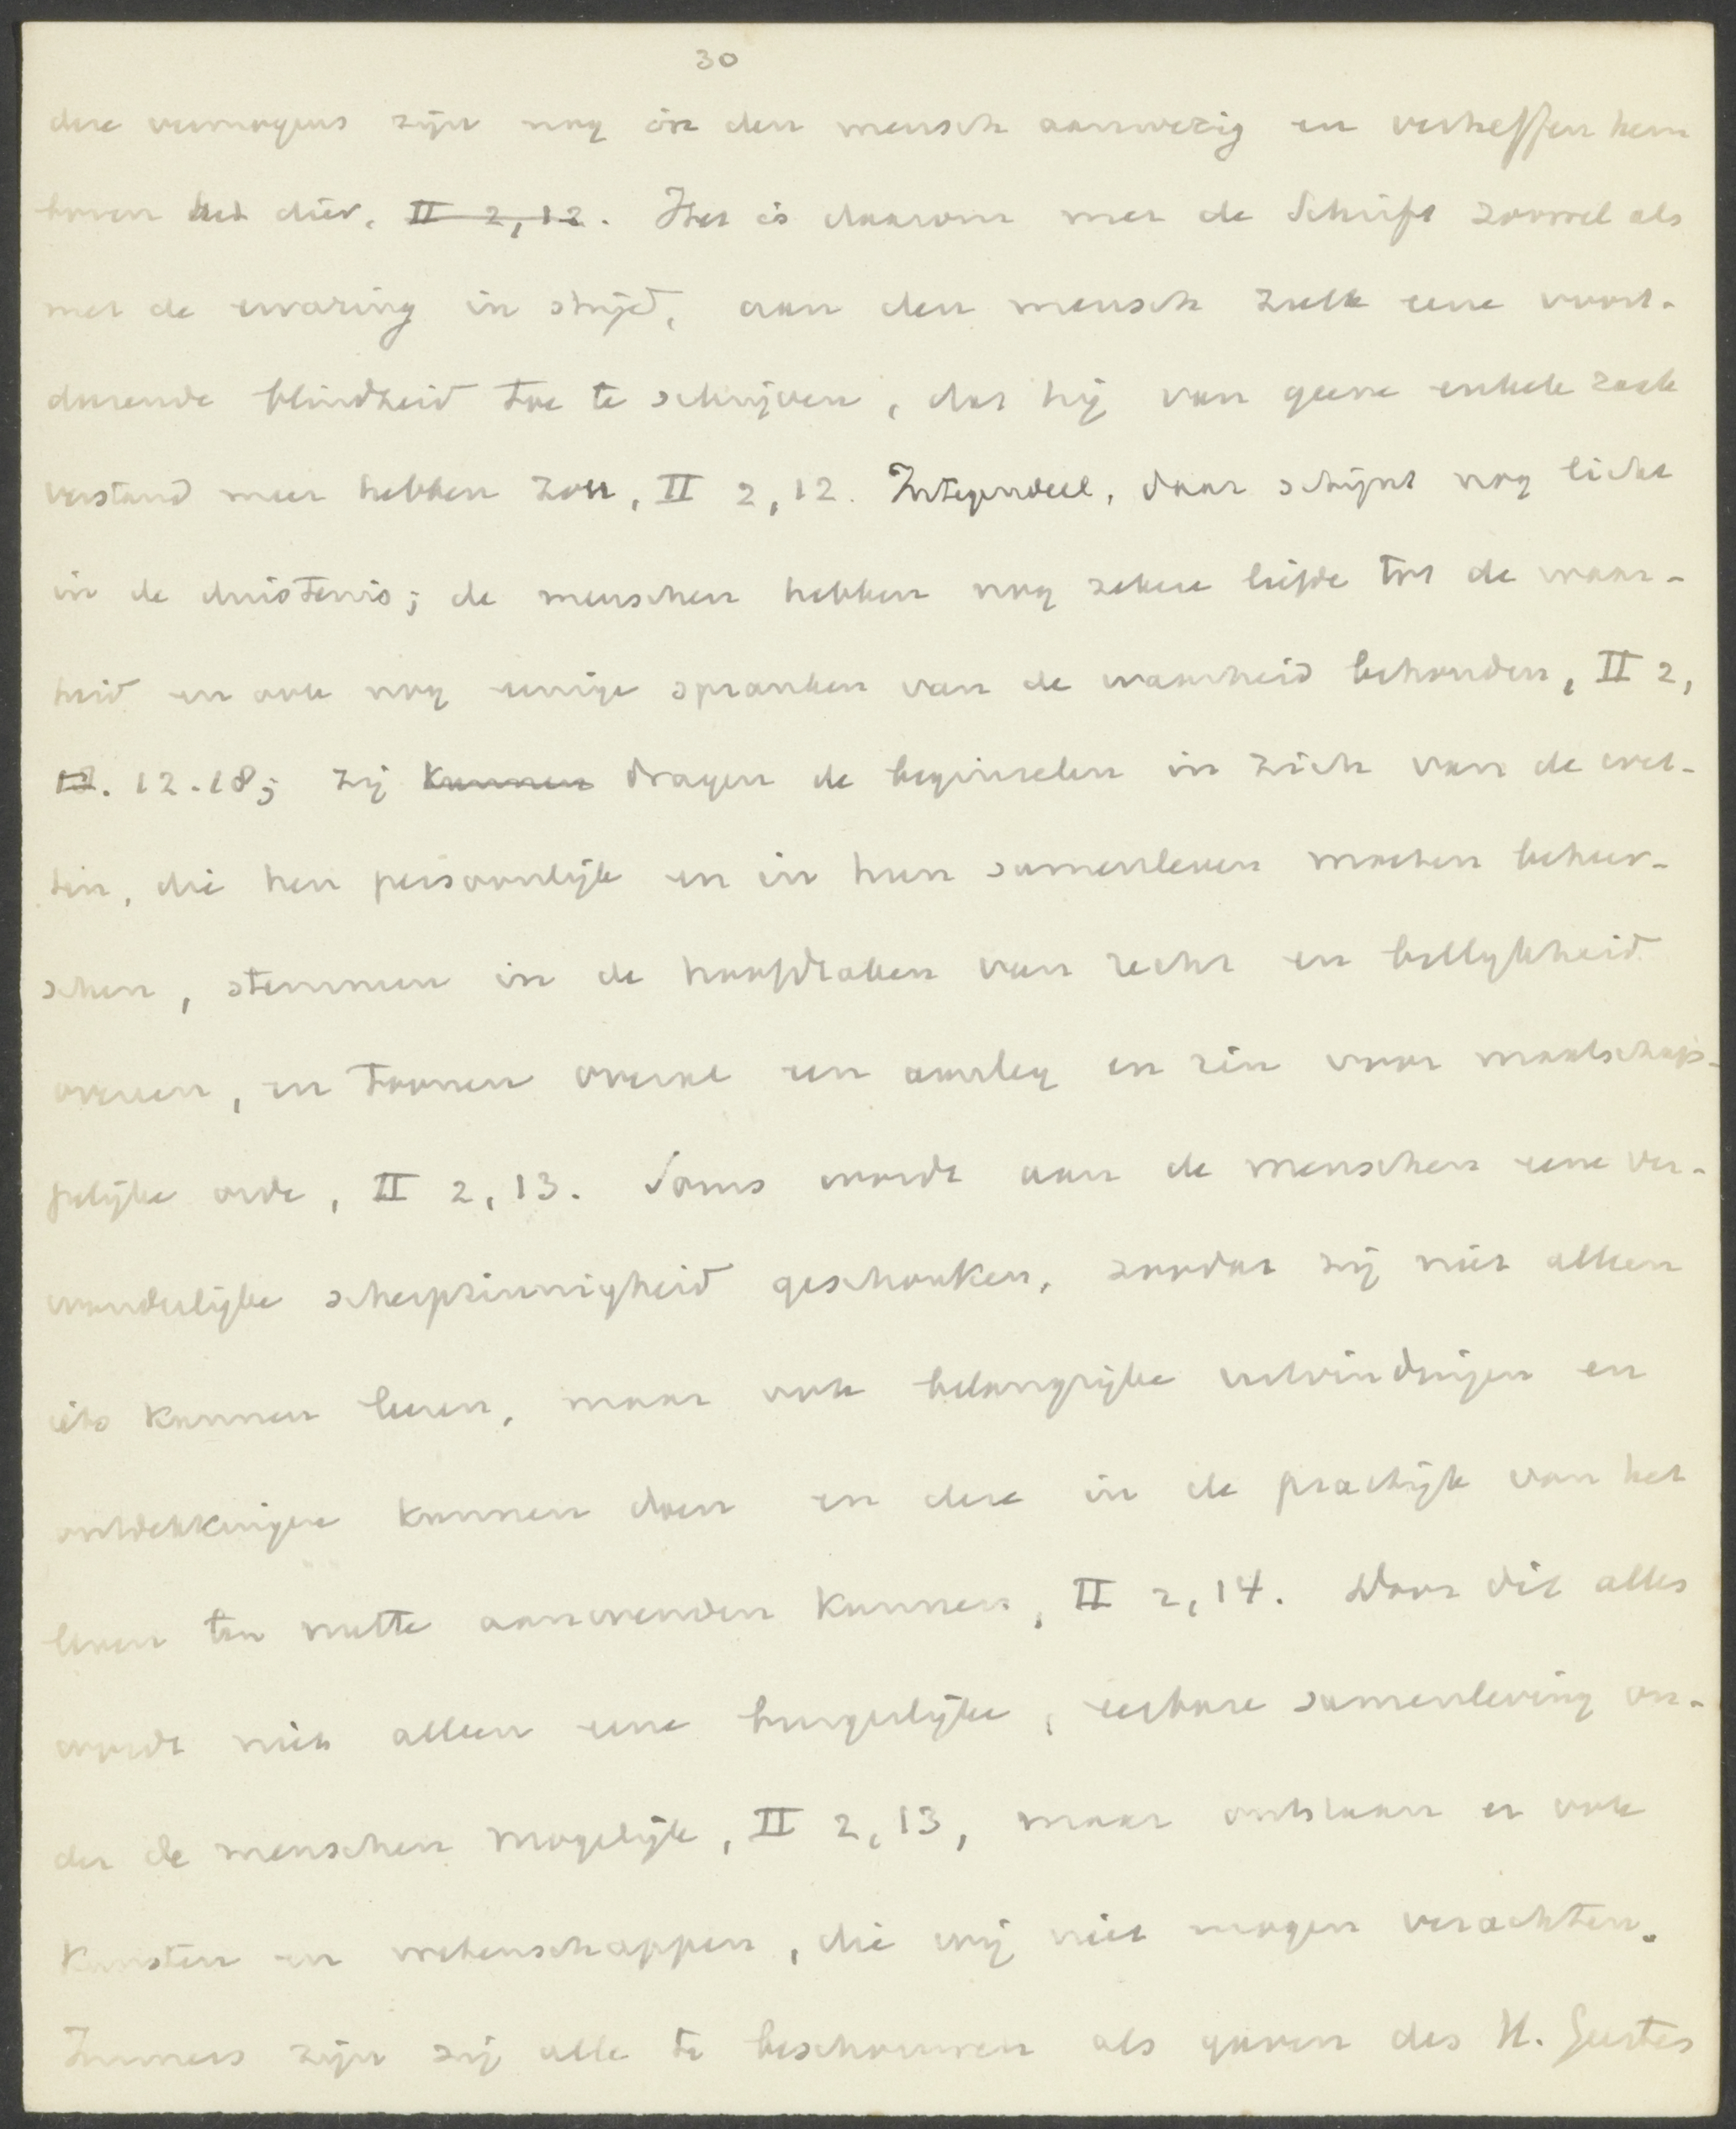 30
deze vermogens zijn nog in den mensch aanwezig en verheffen hem
boven het dier, II 2, 12. Het is daarom met de Schrift zoowel als
met de ervaring in strijd, aan den mensch zulk eene voort-
durende blindheid toe te schrijven, dat hij van geene enkele zaak
verstand meer hebben zou, II 2, 12. Integendeel, daar schijnt nog licht
in de duisternis; de menschen hebben nog zekere liefde tot de waar-
heid en ook nog eenige spranken van de waarheid behouden, II 2,
12. 12.18; zij kunnen dragen de beginselen in zich van de wet-
ten, die hen persoonlijk en in hun samenleven moeten beheer-
schen, stemmen in de hoofdzaken van recht en billijkheid
overeen, en toonen overal een aanleg en zin voor maatschap-
pelijke orde, II 2, 13. Soms wordt aan de menschen eene ver-
wonderlijke scherpzinnigheid geschonken, zoodat zij niet alleen
iets kunnen leeren, maar ook belangrijke uitvindingen en
ontdekkingen kunnen doen en deze in de practijk van het
leven ten nutte aanwenden kunnen, II 2, 14. Door dit alles
wordt niet alleen eene burgerlijke, eerbare samenleving on-
der de menschen mogelijk, II 2, 13, maar ontstaan er ook
kunsten en wetenschappen, die wij niet mogen verachten.
Immers zijn zij alle te beschouwen als gaven des H. Geestes